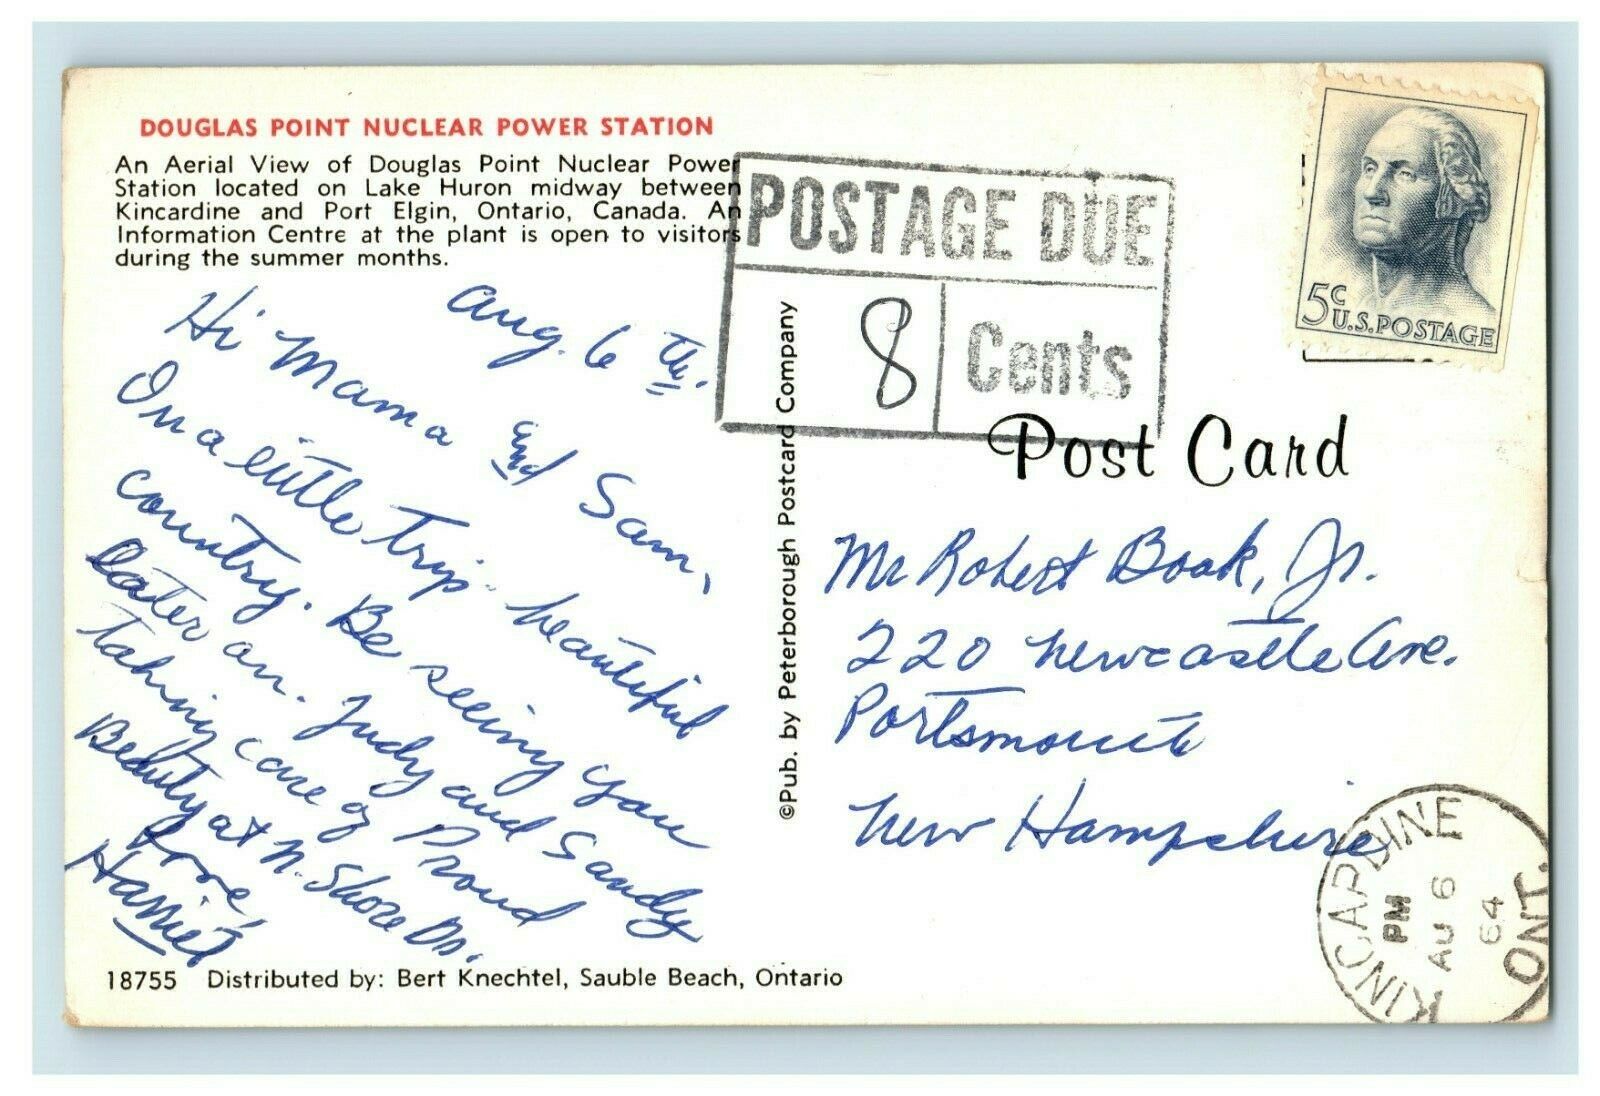 DOUGLAS POINT NUCLEAR POWER STATION
An Aerial View of Douglas Point Nuclear Power
Station located on Lake Huron midway between
Kincardine and Port Elgin, Ontario, Canada. An
Information Centre at the plant is open to visitors
during the summer months.
Aug. 6 th.
Hi Mama and Sam,
On a little trip - beautiful
country. Be seeing you
later on. Judy and Sandy
taking care of Proud
Beauty at N. Shore Dr.
Love,
Harriet
18755 Distributed by: Bert Knechtel, Sauble Beach, Ontario
©Pub. by Peterborough Postcard Company
POSTAGE DUE
8 Cents
5c
U.S. POSTAGE
Post Card
Mr Robert Boak, Jr.
220 Newcastle Ave.
Portsmouth
New Hampshire
KINCARDINE
PM
AU 6
64
ONT.